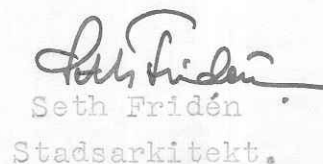 Seth Fridén
Seth Fridén
Stadsarkitekt.